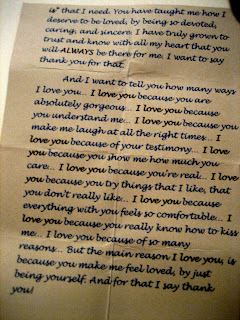 is" that I need. You have taught me how I
deserve to be loved, by being so devoted,
caring, and sincere. I have truly grown to
trust and know with all my heart that you
will ALWAYS be there for me. I want to say
thank you for that.
And I want to tell you how many ways
I love you... I love you because you are
absolutely gorgeous... I love you because
you understand me... I love you because you
make me laugh at all the right times... I
love you because of your testimony... I love
you because you show me how much you
care... I love you because you're real... I love
you because you try things that I like, that
you don't really like... I love you because
everything with you feels so comfortable... I
love you because you really know how to kiss
me... I love you because of so many
reasons... But the main reason I love you, is
because you make me feel loved, by just
being yourself. And for that I say thank
you!